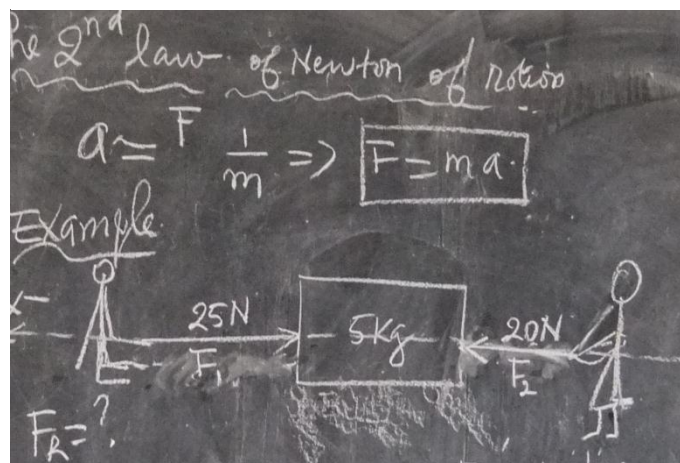 he 2nd law of Newton of motion
a ≃ F 1/m => F = ma.
Example
25N 5Kg 20N
F1 F2
FR = ?